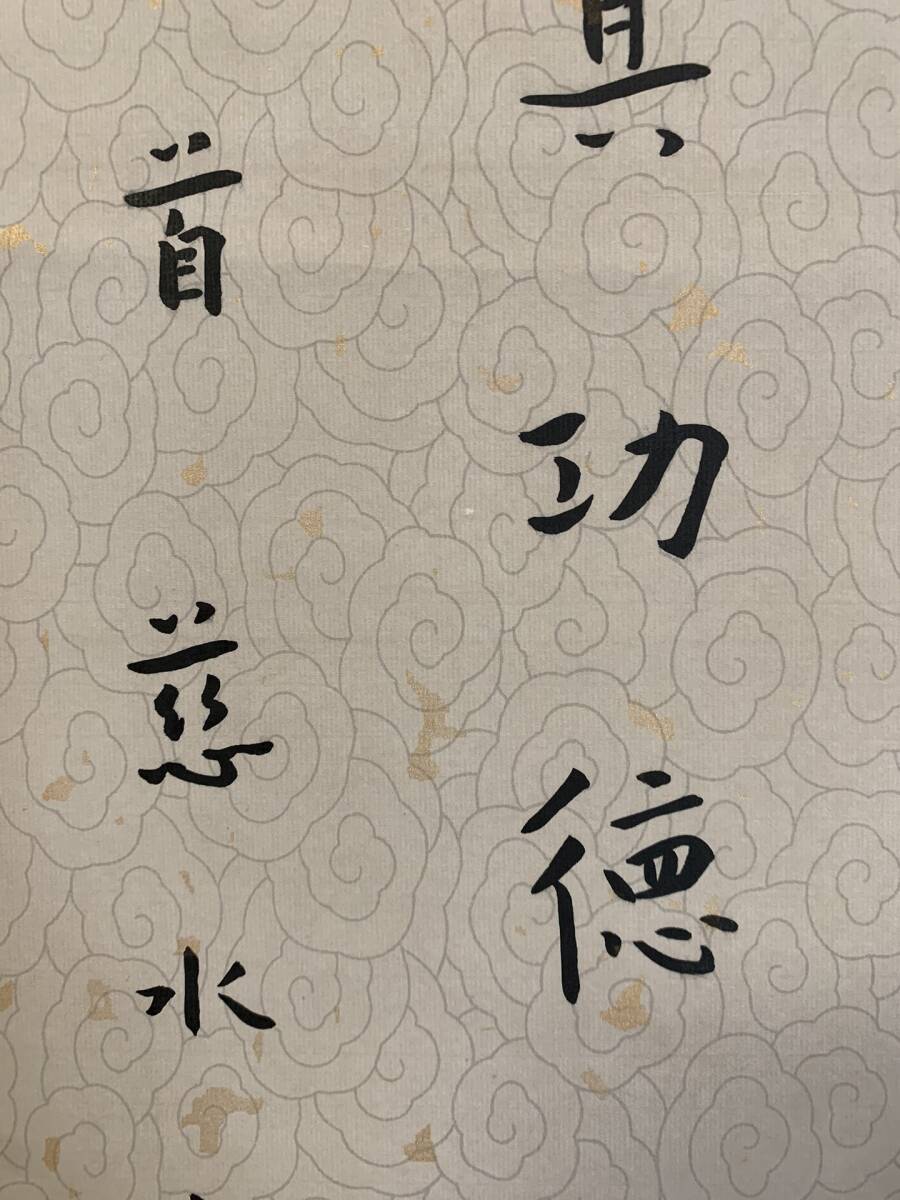 真功德
首慈水